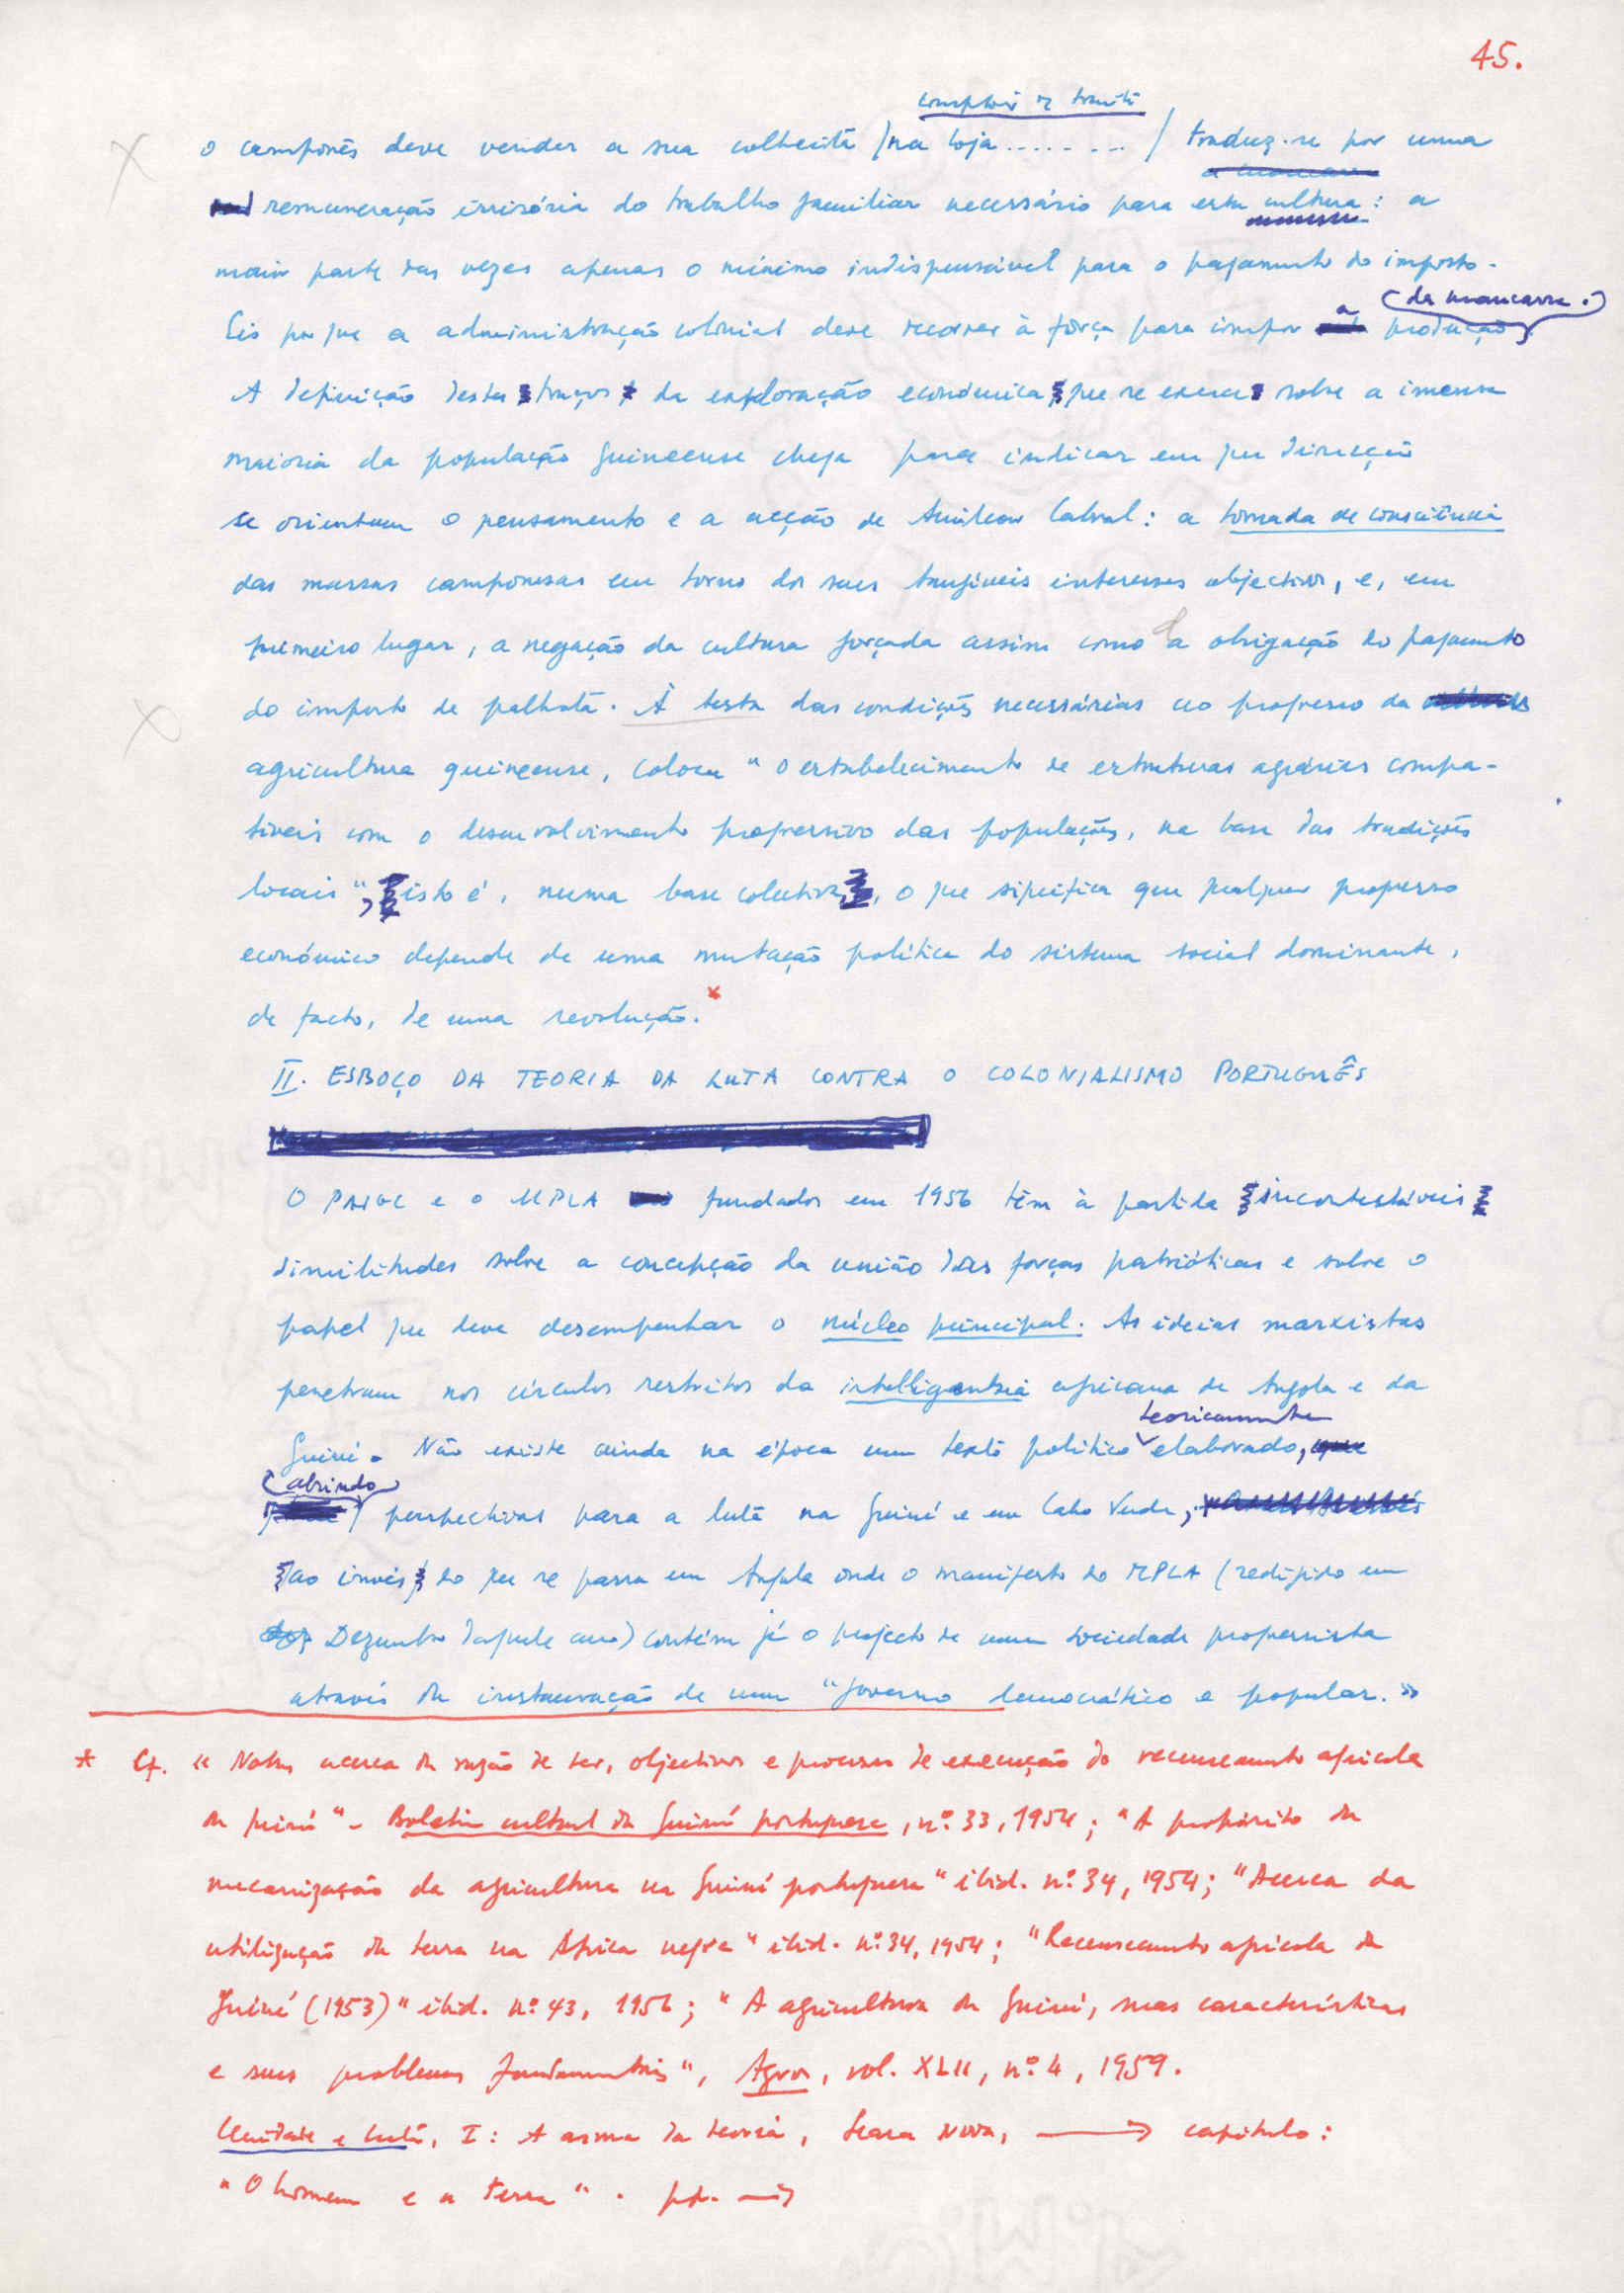 45.
comptoir de traite
o camponês deve vender a sua colheita /na loja......../ traduz-se por uma
remuneração irrisória do trabalho familiar necessário para esta cultura: a
maior parte das vezes apenas o mínimo indispensável para o pagamento do imposto.
Eis porque a administração colonial deve recorrer à força para impor a produção (da mancarra.)
A definição destes traços da exploração económica que se exerce sobre a imensa
maioria da população guineense chega para indicar em que direcção
se orientam o pensamento e a acção de Amílcar Cabral: a tomada de consciência
das massas camponesas em torno dos seus tangíveis interesses objectivos, e, em
primeiro lugar, a negação da cultura forçada assim como a obrigação do pagamento
do imposto de palhota. À testa das condições necessárias ao progresso da
agricultura guineense, coloca "o estabelecimento de estruturas agrárias compa-
tíveis com o desenvolvimento progressivo das populações, na base das tradições
locais", isto é, numa base colectiva, o que significa que qualquer progresso
económico depende de uma mutação política do sistema social dominante,
de facto, de uma revolução.*
II. ESBOÇO DA TEORIA DA LUTA CONTRA O COLONIALISMO PORTUGUÊS
O PAIGC e o MPLA fundados em 1956 têm à partida incontestáveis
similitudes sobre a concepção da união das forças patrióticas e sobre o
papel que deve desempenhar o núcleo principal. As ideias marxistas
penetram nos círculos restritos da intelligentsia africana de Angola e da
Guiné. Não existe ainda na época um texto político teoricamente elaborado,
abrindo perspectivas para a luta na Guiné e em Cabo Verde,
ao invés do que se passa em Angola onde o manifesto do MPLA (redigido em
Dezembro daquele ano) contém já o projecto de uma sociedade progressista
através da instauração de um "governo democrático e popular.»
* Cf. « Notas acerca da razão de ser, objectivos e processo de execução do recenseamento agrícola
da guiné" - Boletim cultural da Guiné portuguesa, nº. 33, 1954; "A propósito da
mecanização da agricultura na Guiné portuguesa" ibid. nº. 34, 1954; "Acerca da
utilização da terra na África negra" ibid. nº. 34, 1954; "Recenseamento agrícola da
Guiné (1953)" ibid. nº. 43, 1956; "A agricultura da Guiné, suas características
e seus problemas fundamentais", Agros, vol. XLII, nº. 4, 1959.
Unidade e Luta, I: A arma da teoria, Seara Nova, → capítulo:
"O homem e a terra". pp. →